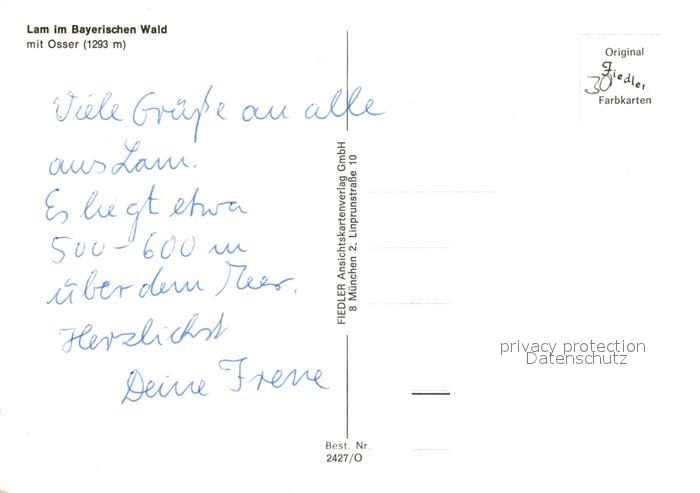 Lam im Bayerischen Wald
mit Osser (1293 m)
Viele Grüße an alle
aus Lam.
Es liegt etwa
500-600 m
über dem Meer.
Herzlichst
Deine Irene
FIEDLER Ansichtskartenverlag GmbH
8 München 2, Linprunstraße 10
Best. Nr.
2427/O
Original
Fiedler
30
Farbkarten
privacy protection
Datenschutz